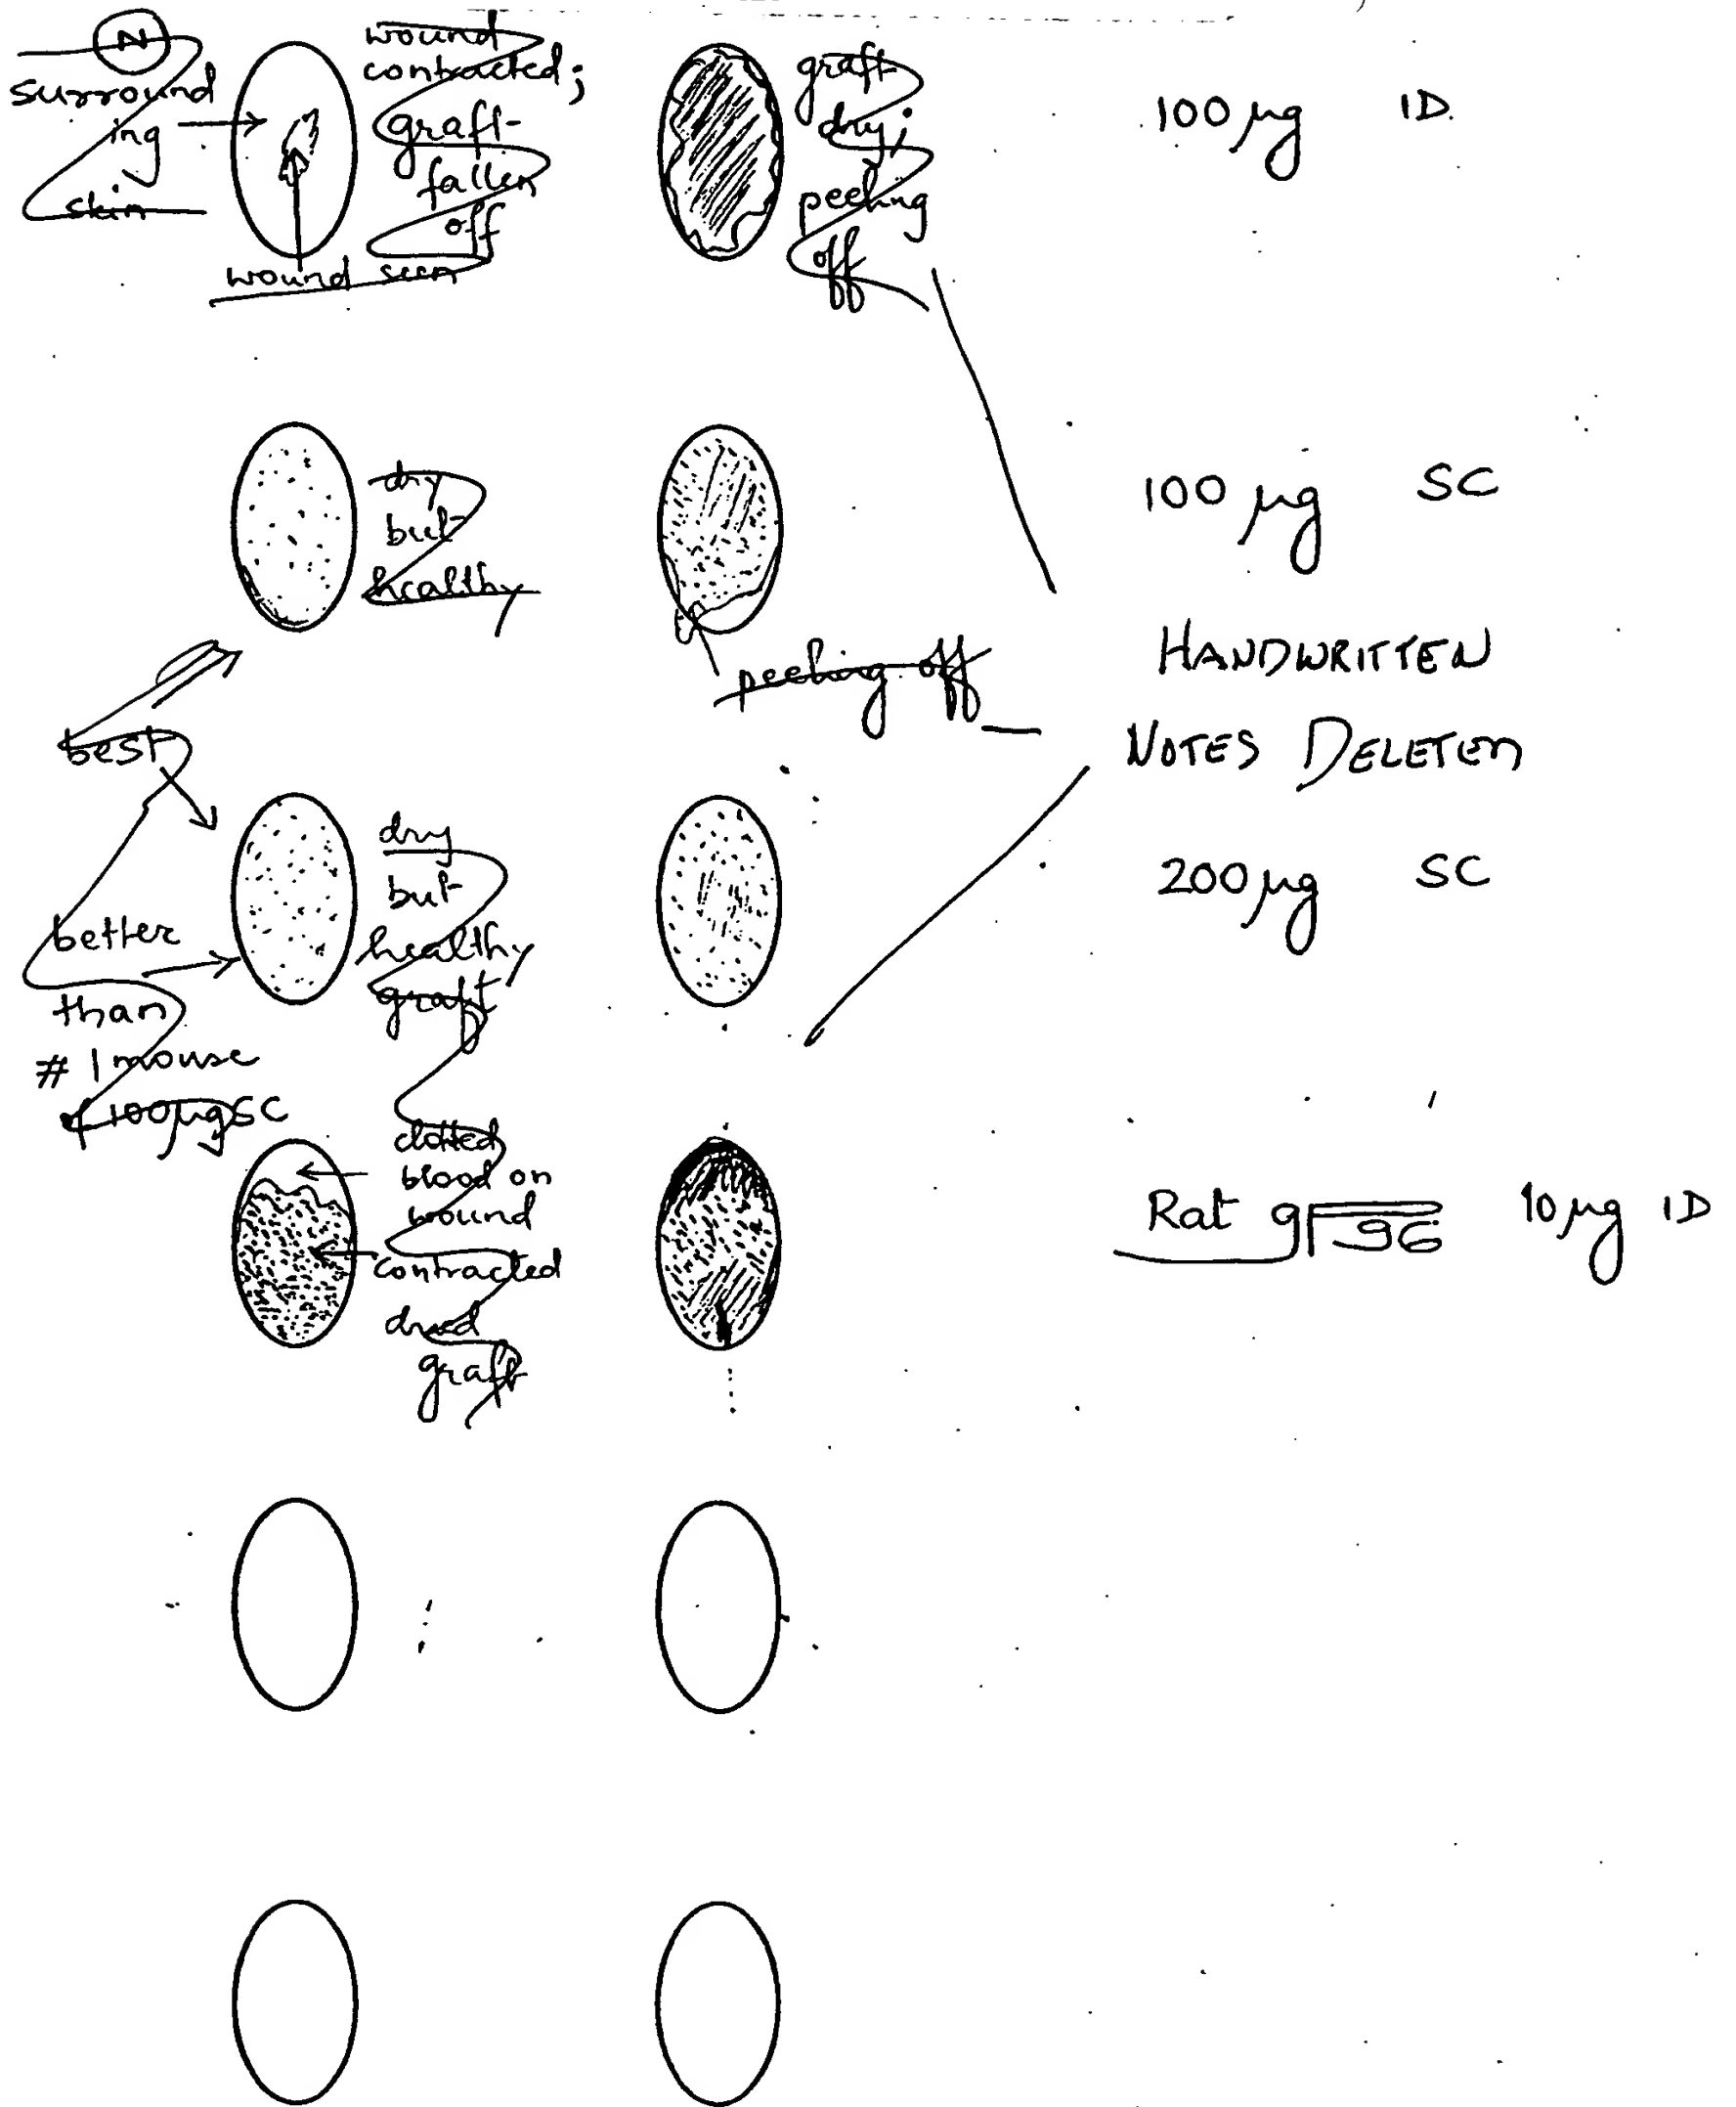 N
surround
ing
skin
wound
contracted;
graft
fallen
off
wound seen
graft
dry;
peeling
off
100 µg ID.
dry
but
healthy
peeling off
100 µg SC
HANDWRITTEN
NOTES DELETED
best
better
than
# 1 mouse
of 100µg SC
dry
but
healthy
graft
200 µg SC
clotted
blood on
wound
contracted
dried
graft
Rat gp96 10 µg ID